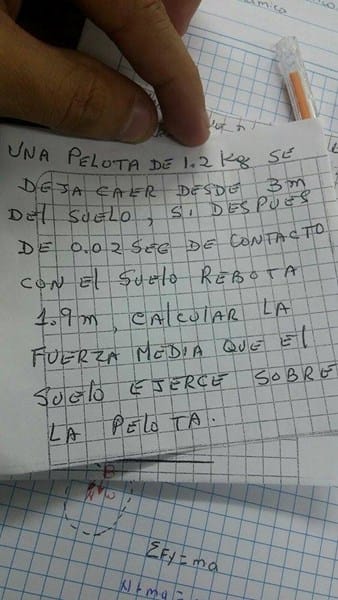 UNA PELOTA DE 1.2 Kg SE
DEJA CAER DESDE 3m
DEL SUELO, Si DESPUES
DE 0.02 SEG DE CONTACTO
CON El SUELO REBOTA
1.9m, CALCULAR LA
FUERZA MEDIA QUE El
SUELO EJERCE SOBRE
LA PELOTA.
B
ΣFy = ma